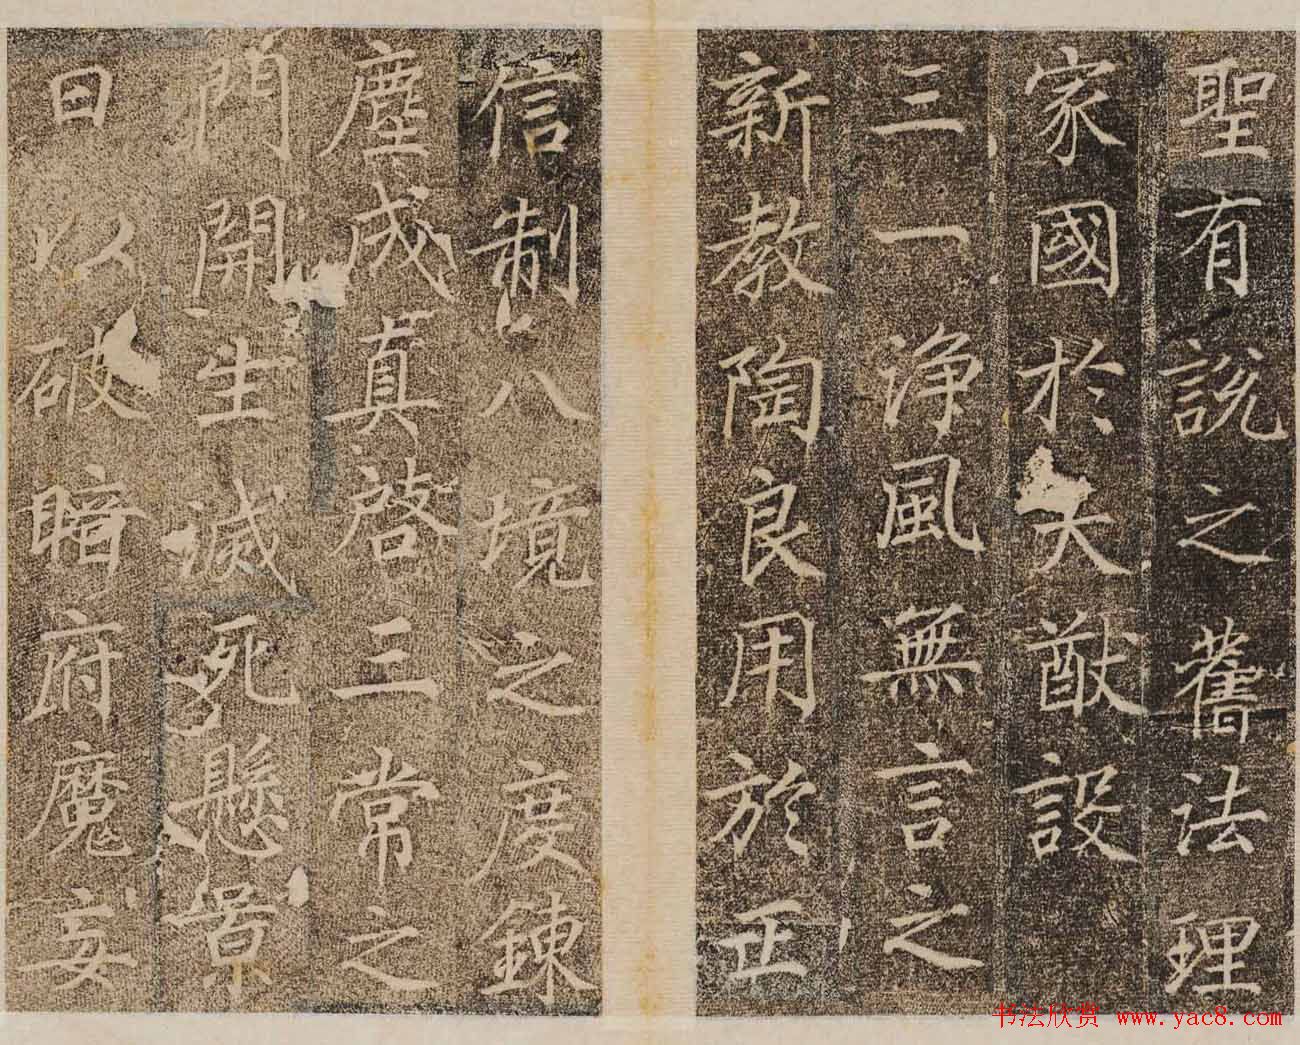 聖有說之舊法理
家國於大猷設
三一浄風無言之
新教陶良用於正
信制八境之度鍊
塵成真啓三常之
門開生滅死懸景
日以破暗府魔妄
书法欣赏 www.yac8.com